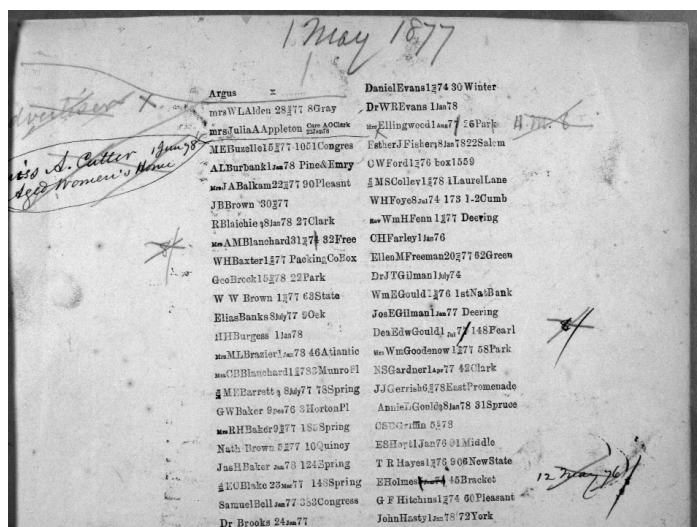 1 May 1877
Argus x
mrsWLAlden 28 77 8Gray
mrsJuliaAAppleton Care AOClark
MEBuzelle15 77 1051Congres
ALBurbank1Jan78 Pine&Emry
MrsJABalkam22 77 90Pleasnt
JBBrown 30 77
RBlaichie 8Jan78 27Clark
MrsAMBlanchard31 74 32Free
WHBaxter1 77 PackingCoBox
GeoBrock15 78 22Park
W W Brown 1 77 63State
EliasBanks 8July77 9Oek
HHBurgess 1Jan78
MrsMLBrazier1Jan78 46Atlantic
MrsCBBlanchard1 78 MunroPl
MEBarrett 8July77 78Spring
GWBaker 9 76 3HortonPl
MrsRHBaker9 77 Spring
Nath Brown 5 77 10Quincy
JasHBaker Jan78 124Spring
ECBlake 23Mar77 148Spring
SamuelBell Jan77 383Congress
Dr Brooks 24Jan77
DanielEvans1 74 30 Winter
DrWREvans 1Jan78
MrsEllingwood1 77 26Park
EstherJFisher 8Jan7822Salem
CWFord1 76 box1559
MSColley1 78 1LaurelLane
WHFoye8Jul74 173 1-2Cumb
Rev WmHFenn 1 77 Deering
CHFarley1Jan76
EllenMFreeman20 77 62Green
DrJTGilman1July74
WmEGould1 76 1stNatBank
JosEGilman1Jan77 Deering
DeaEdwGould1Jul7 148Pearl
MrsWmGoodenow1 77 58Park
NSGardner1Apr77 42Clark
JJGerrish6 78EastPromenade
AnnieLGould 8Jan78 31Spruce
Griffin 5 78
ESHort1Jan76 91Middle
T R Hayes1 76 906NewState
EHolmes 45Bracket
G F Hitchins1 74 60Pleasant
JohnHasty1Jan78 72York
Advertiser x.
Miss A. Cutter 1 Jan 78
Aged Women's Home
12 May 76